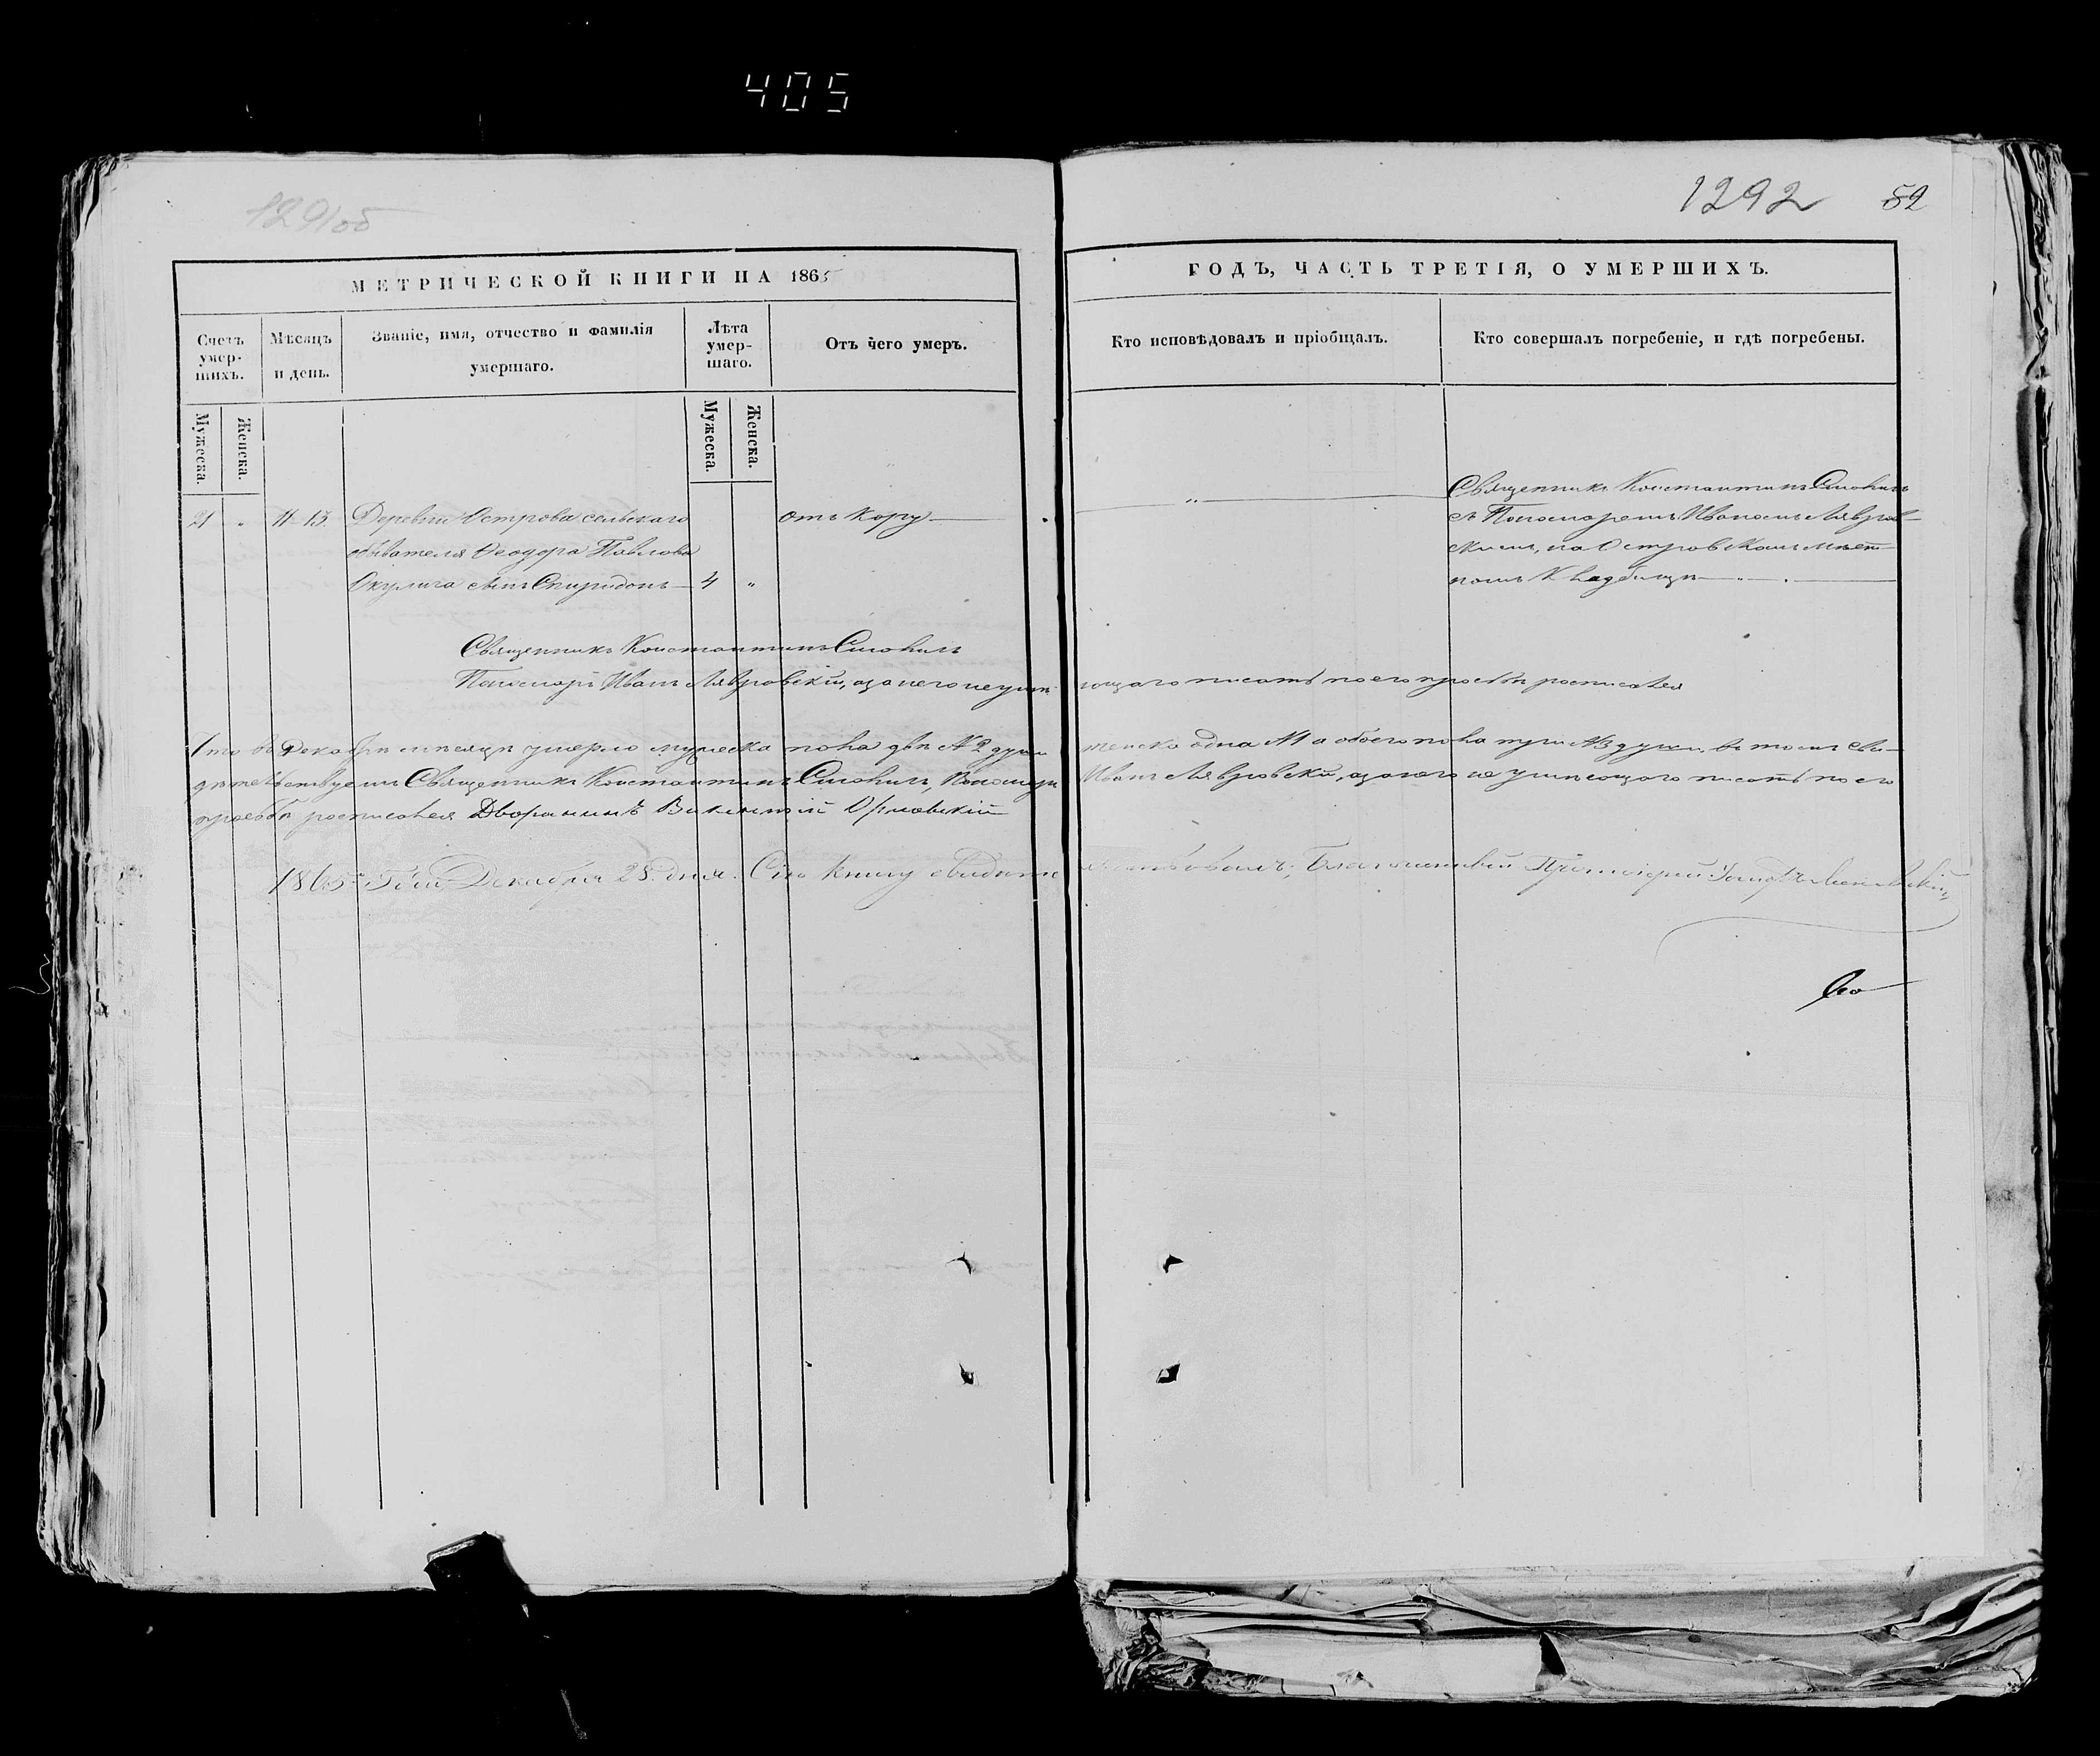 405
1291об
1292 52
МЕТРИЧЕСКОЙ КНИГИ НА 1865
ГОДЪ, ЧАСТЬ ТРЕТІЯ, О УМЕРШИХЪ.
Счетъ умер-шихъ.
Мѣсяцъ и день.
Званіе, имя, отчество и фамилія умершаго.
Лѣта умер-шаго.
Отъ чего умеръ.
Кто исповѣдовалъ и пріобщалъ.
Кто совершалъ погребеніе, и гдѣ погребены.
Мужеска.
Женска.
Мужеска.
Женска.
21 " 11 13 Деревни Острова сельскаго
обывателя Ѳеодора Павлова
Окулича сынъ Спиридонъ 4 "
отъ кору
"
Священникъ Константинъ
съ Пономаремъ Иваномъ Лявров-
скимъ, на Островскомъ мѣст-
номъ кладбищѣ
Священникъ Константинъ
Пономарь Иванъ Лявровскій, а за него неумѣ-
ющаго писать по его прозьбѣ росписался
Что въ Декабрѣ мѣсяцѣ умерло мужеска пола двѣ №2 души
женска одна №1 а обоего пола три №3 души, въ томъ сви-
дѣтельствуемъ Священникъ Константинъ Пономарь
Иванъ Лявровскій, а за него неумѣющаго писать по его
прозьбѣ росписался Дворянинъ Викентій Орловскій
1865 Года Декабря 28 дня. Сію книгу свидѣтельствовалъ; Благочинный Протоіерей